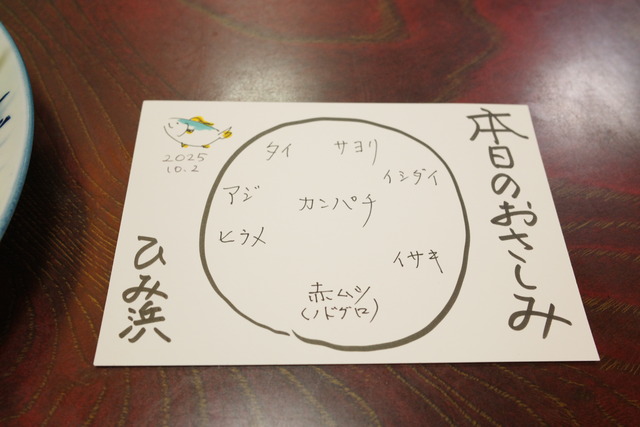 本日のおさしみ
2025
10.2
タイ
サヨリ
イシダイ
アジ
カンパチ
ヒラメ
イサキ
赤ムツ
(ノドグロ)
ひみ浜